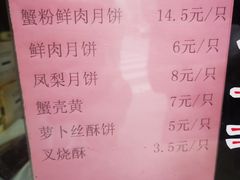 蟹粉鲜肉月饼 14.5元/只
鲜肉月饼 6元/只
凤梨月饼 8元/只
蟹壳黄 7元/只
萝卜丝酥饼 5元/只
叉烧酥 3.5元/只